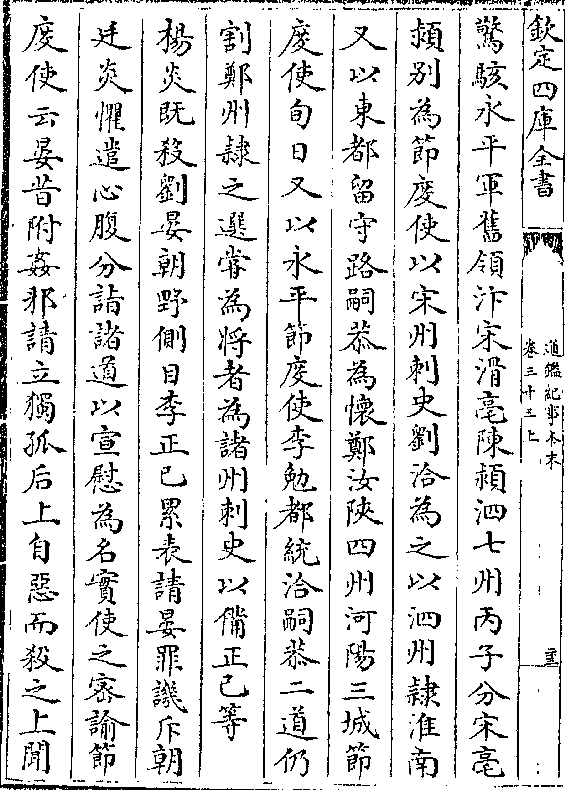 欽定四庫全書
通鑑紀事本末
卷三十三上
驚駭永平軍舊領汴宋滑亳陳潁泗七州丙子分宋亳
潁別為節度使以宋州刺史劉洽為之以泗州隸淮南
又以東都留守路嗣恭為懷鄭汝陝四州河陽三城節
度使旬日又以永平節度使李勉都統洽嗣恭二道仍
割鄭州隸之選嘗為將者為諸州刺史以備正已等
楊炎既殺劉晏朝野側目李正已累表請晏罪譏斥朝
廷炎懼遣心腹分詣諸道以宣慰為名實使之密諭節
度使云晏昔附姦邪請立獨孤后上自惡而殺之上聞